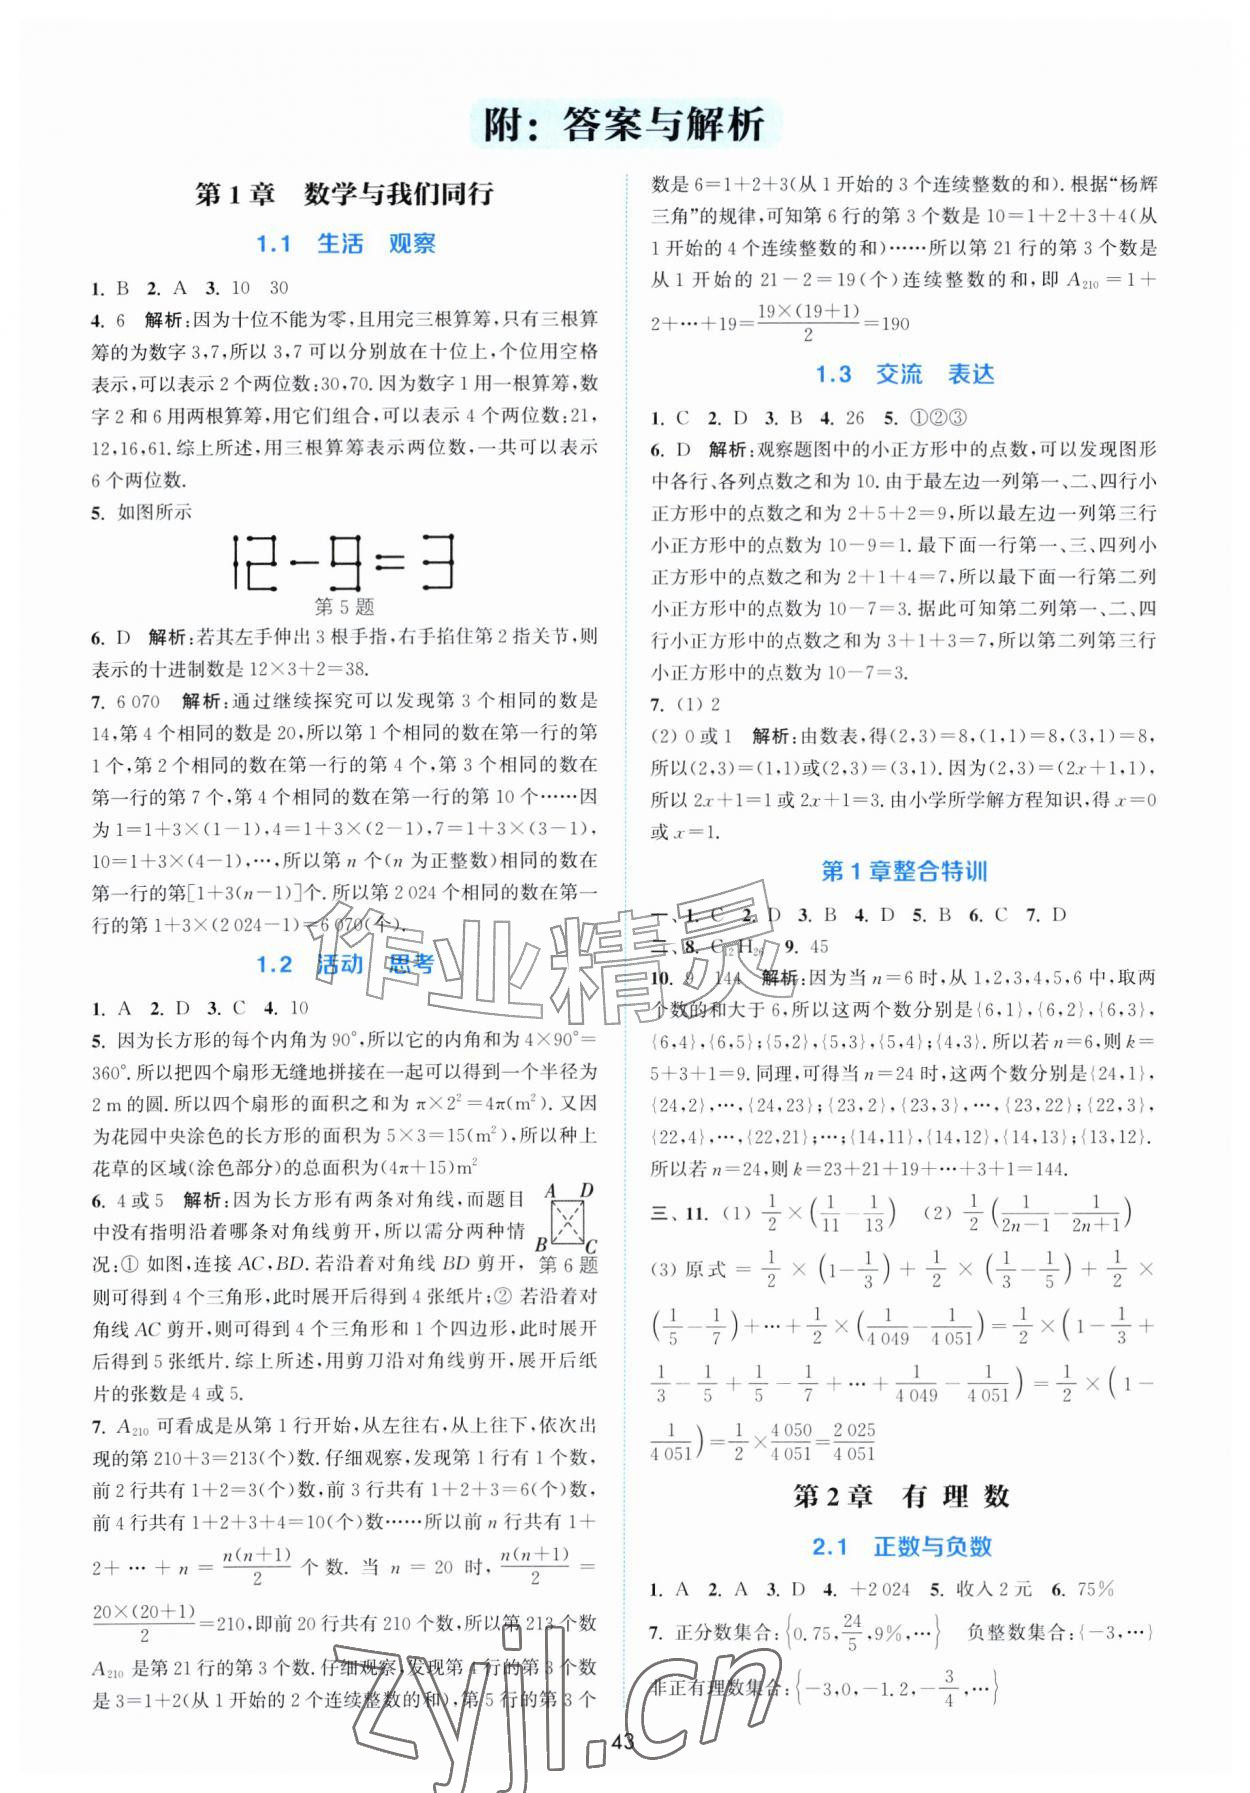 附：答案与解析
第1章　数学与我们同行
1.1　生活　观察
1. B 2. A 3. 10 30
4. 6　解析:因为十位不能为零,且用完三根算筹,只有三根算
筹的为数字3,7,所以3,7可以分别放在十位上,个位用空格
表示,可以表示2个两位数:30,70.因为数字1用一根算筹,数
字2和6用两根算筹,用它们组合,可以表示4个两位数:21,
12,16,61.综上所述,用三根算筹表示两位数,一共可以表示
6个两位数.
5. 如图所示
12－9＝3
第5题
6. D　解析:若其左手伸出3根手指,右手掐住第2指关节,则
表示的十进制数是12×3+2=38.
7. 6 070　解析:通过继续探究可以发现第3个相同的数是
14,第4个相同的数是20,所以第1个相同的数在第一行的第
1个,第2个相同的数在第一行的第4个,第3个相同的数在
第一行的第7个,第4个相同的数在第一行的第10个……因
为1=1+3×(1−1),4=1+3×(2−1),7=1+3×(3−1),
10=1+3×(4−1),…,所以第n个(n为正整数)相同的数在
第一行的第[1+3(n−1)]个.所以第2 024个相同的数在第一
行的第1+3×(2 024−1)=6 070(个).
1.2　活动　思考
1. A 2. D 3. C 4. 10
5. 因为长方形的每个内角为90°,所以它的内角和为4×90°=
360°.所以把四个扇形无缝地拼接在一起可以得到一个半径为
2 m的圆.所以四个扇形的面积之和为π×2²=4π(m²).又因
为花园中央涂色的长方形的面积为5×3=15(m²),所以种上
花草的区域(涂色部分)的总面积为(4π+15)m²
6. 4或5　解析:因为长方形有两条对角线,而题目
中没有指明沿着哪条对角线剪开,所以需分两种情
况:① 如图,连接AC,BD.若沿着对角线BD剪开,
A D
B C
第6题
则可得到4个三角形,此时展开后得到4张纸片;② 若沿着对
角线AC剪开,则可得到4个三角形和1个四边形,此时展开
后得到5张纸片.综上所述,用剪刀沿对角线剪开,展开后纸
片的张数是4或5.
7. A₂₁₀可看成是从第1行开始,从左往右,从上往下,依次出
现的第210+3=213(个)数.仔细观察,发现第1行有1个数,
前2行共有1+2=3(个)数,前3行共有1+2+3=6(个)数,
前4行共有1+2+3+4=10(个)数……所以前n行共有1+
2+…+n=n(n+1)/2个数.当n=20时,n(n+1)/2=
20×(20+1)/2=210,即前20行共有210个数,所以第213个数
A₂₁₀是第21行的第3个数.仔细观察,发现第4行的第3个数
是3=1+2(从1开始的2个连续整数的和),第5行的第3个
数是6=1+2+3(从1开始的3个连续整数的和).根据“杨辉
三角”的规律,可知第6行的第3个数是10=1+2+3+4(从
1开始的4个连续整数的和)……所以第21行的第3个数是
从1开始的21−2=19(个)连续整数的和,即A₂₁₀=1+
2+…+19=19×(19+1)/2=190
1.3　交流　表达
1. C 2. D 3. B 4. 26 5. ①②③
6. D　解析:观察题图中的小正方形中的点数,可以发现图形
中各行、各列点数之和为10.由于最左边一列第一、二、四行小
正方形中的点数之和为2+5+2=9,所以最左边一列第三行
小正方形中的点数为10−9=1.最下面一行第一、三、四列小
正方形中的点数之和为2+1+4=7,所以最下面一行第二列
小正方形中的点数为10−7=3.据此可知第二列第一、二、四
行小正方形中的点数之和为3+1+3=7,所以第二列第三行
小正方形中的点数为10−7=3.
7. (1) 2
(2) 0或1　解析:由数表,得(2,3)=8,(1,1)=8,(3,1)=8,
所以(2,3)=(1,1)或(2,3)=(3,1).因为(2,3)=(2x+1,1),
所以2x+1=1或2x+1=3.由小学所学解方程知识,得x=0
或x=1.
第1章整合特训
一、1. C 2. D 3. B 4. D 5. B 6. C 7. D
二、8. C₁₂H₂₆ 9. 45
10. 9　144　解析:因为当n=6时,从1,2,3,4,5,6中,取两
个数的和大于6,所以这两个数分别是{6,1},{6,2},{6,3},
{6,4},{6,5};{5,2},{5,3},{5,4};{4,3}.所以若n=6,则k=
5+3+1=9.同理,可得当n=24时,这两个数分别是{24,1},
{24,2},…,{24,23};{23,2},{23,3},…,{23,22};{22,3},
{22,4},…,{22,21};…;{14,11},{14,12},{14,13};{13,12}.
所以若n=24,则k=23+21+19+…+3+1=144.
三、11. (1) 1/2×(1/11−1/13)　(2) 1/2(1/(2n−1)−1/(2n+1))
(3) 原式=1/2×(1−1/3)+1/2×(1/3−1/5)+1/2×
(1/5−1/7)+…+1/2×(1/4 049−1/4 051)=1/2×(1−1/3+
1/3−1/5+1/5−1/7+…+1/4 049−1/4 051)=1/2×(1−
1/4 051)=1/2×4 050/4 051=2 025/4 051
第2章　有理数
2.1　正数与负数
1. A 2. A 3. D 4. +2 024 5. 收入2元 6. 75%
7. 正分数集合:{0.75,24/5,9%,…}　负整数集合:{−3,…}
非正有理数集合:{−3,0,−1.2,−3/4,…}
43
作业精灵
zyjl.cn